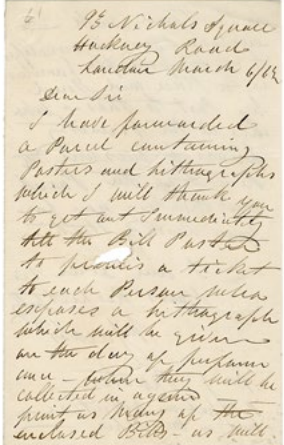 9 Nichols Square
Hackney Road
London March 6/62
Dear Sir
I have forwarded
a Parcel containing
Posters and lithographs
which I will thank you
to get out Immediately
tell the Bill Poster
to promis a ticket
to each Person who
exposes a lithograph
which will be given
on the day of perform
ance - when they will be
collected in again
print as many of the
enclosed Bills - as will